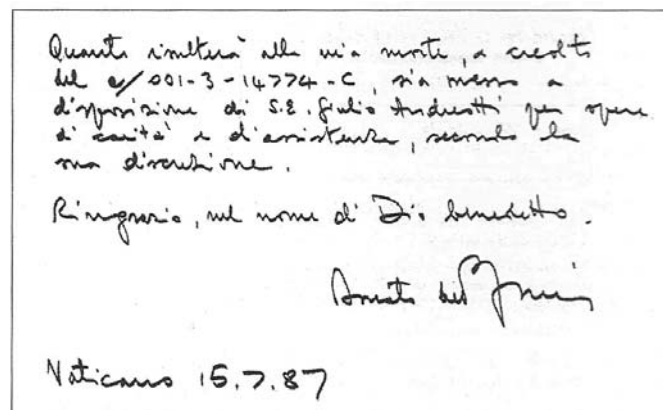 Quanto risulterà alla mia morte, a credito
del c/001-3-14774-C, sia messo a
disposizione di S.E. Giulio Andreotti per opere
di carità e d'assistenza, secondo la
sua discrezione.
Ringrazio, nel nome di Dio benedetto.
Donato de
Vaticano 15.7.87